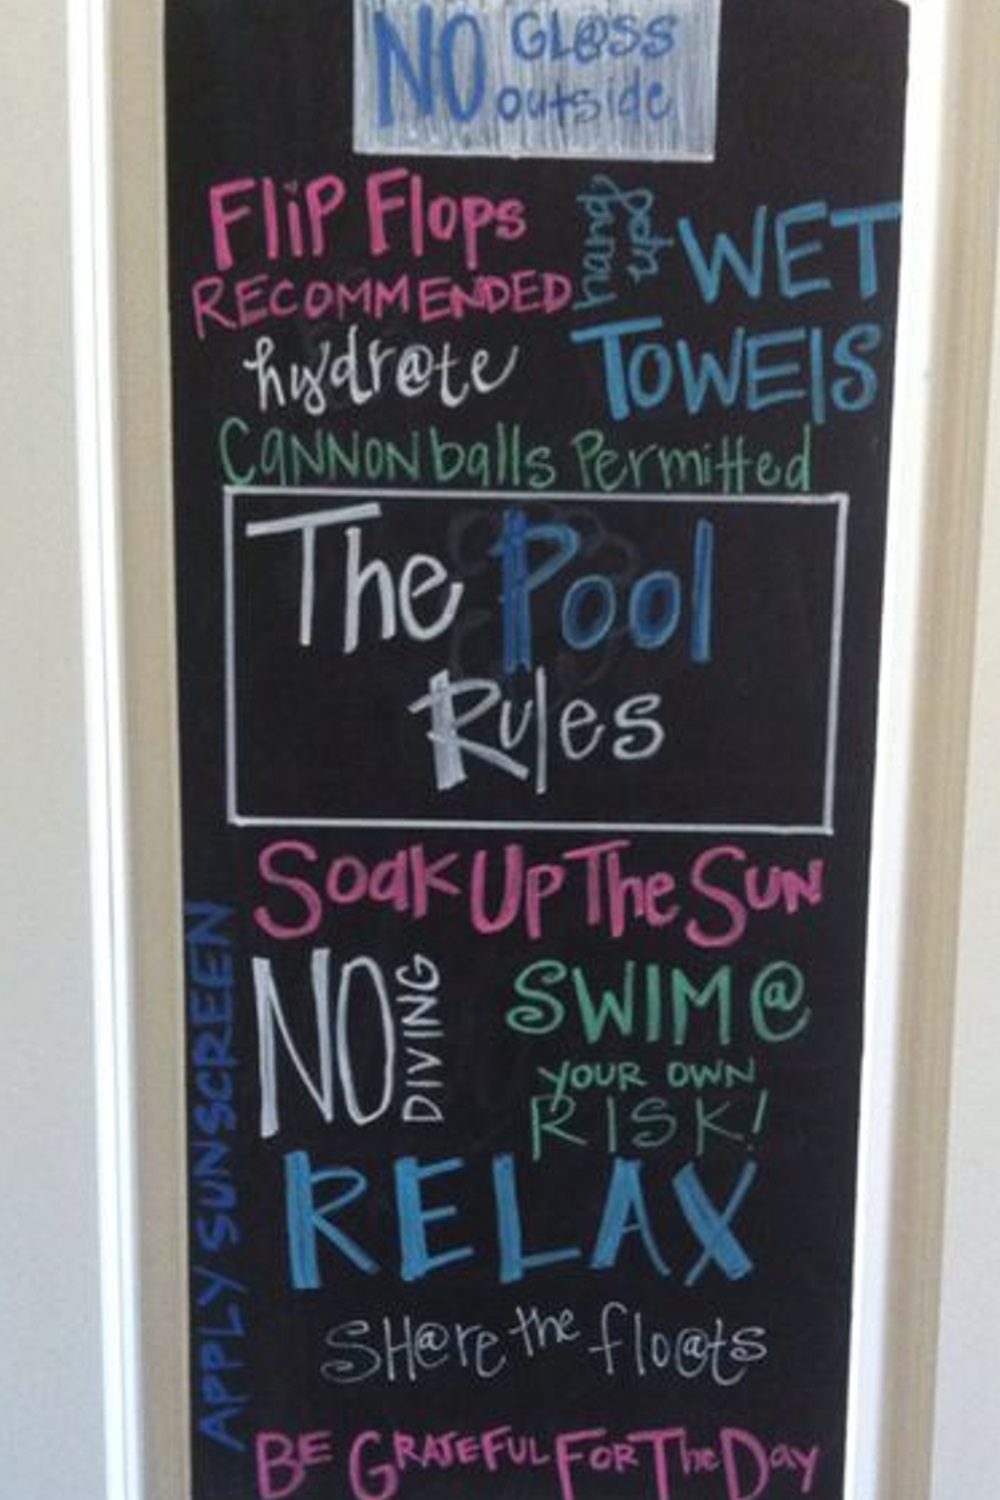 NO GL@SS
outside
FLiP Flops
RECOMMENDED
hang
ups
WET
TOWElS
hydr@te
CaNNONballs Permitted
The Pool
Rules
Soak Up The Sun
NO DIVING
SWIM @
YOUR OWN
RISK!
APPLY SUNSCREEN
RELAX
SH@re the flo@ts
BE GRATEFUL FOR The Day